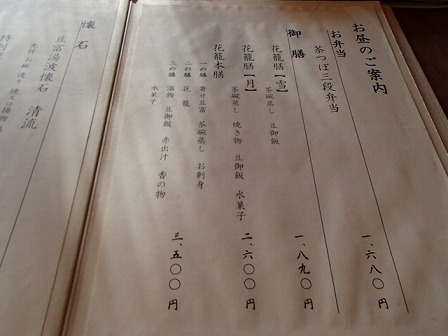 お昼のご案内
お弁当
茶つぼ三段弁当 一、六八〇円
御膳
花籠膳【雪】 一、八九〇円
茶碗蒸し 豆御飯
花籠膳【月】 二、六〇〇円
茶碗蒸し 焼き物 豆御飯 水菓子
花籠本膳 三、五〇〇円
一の膳 寄せ豆富 茶碗蒸し お刺身
二の膳 花籠
三の膳 温物 豆御飯 赤出汁 香の物
水菓子
懐石
豆富湯波懐石 清流